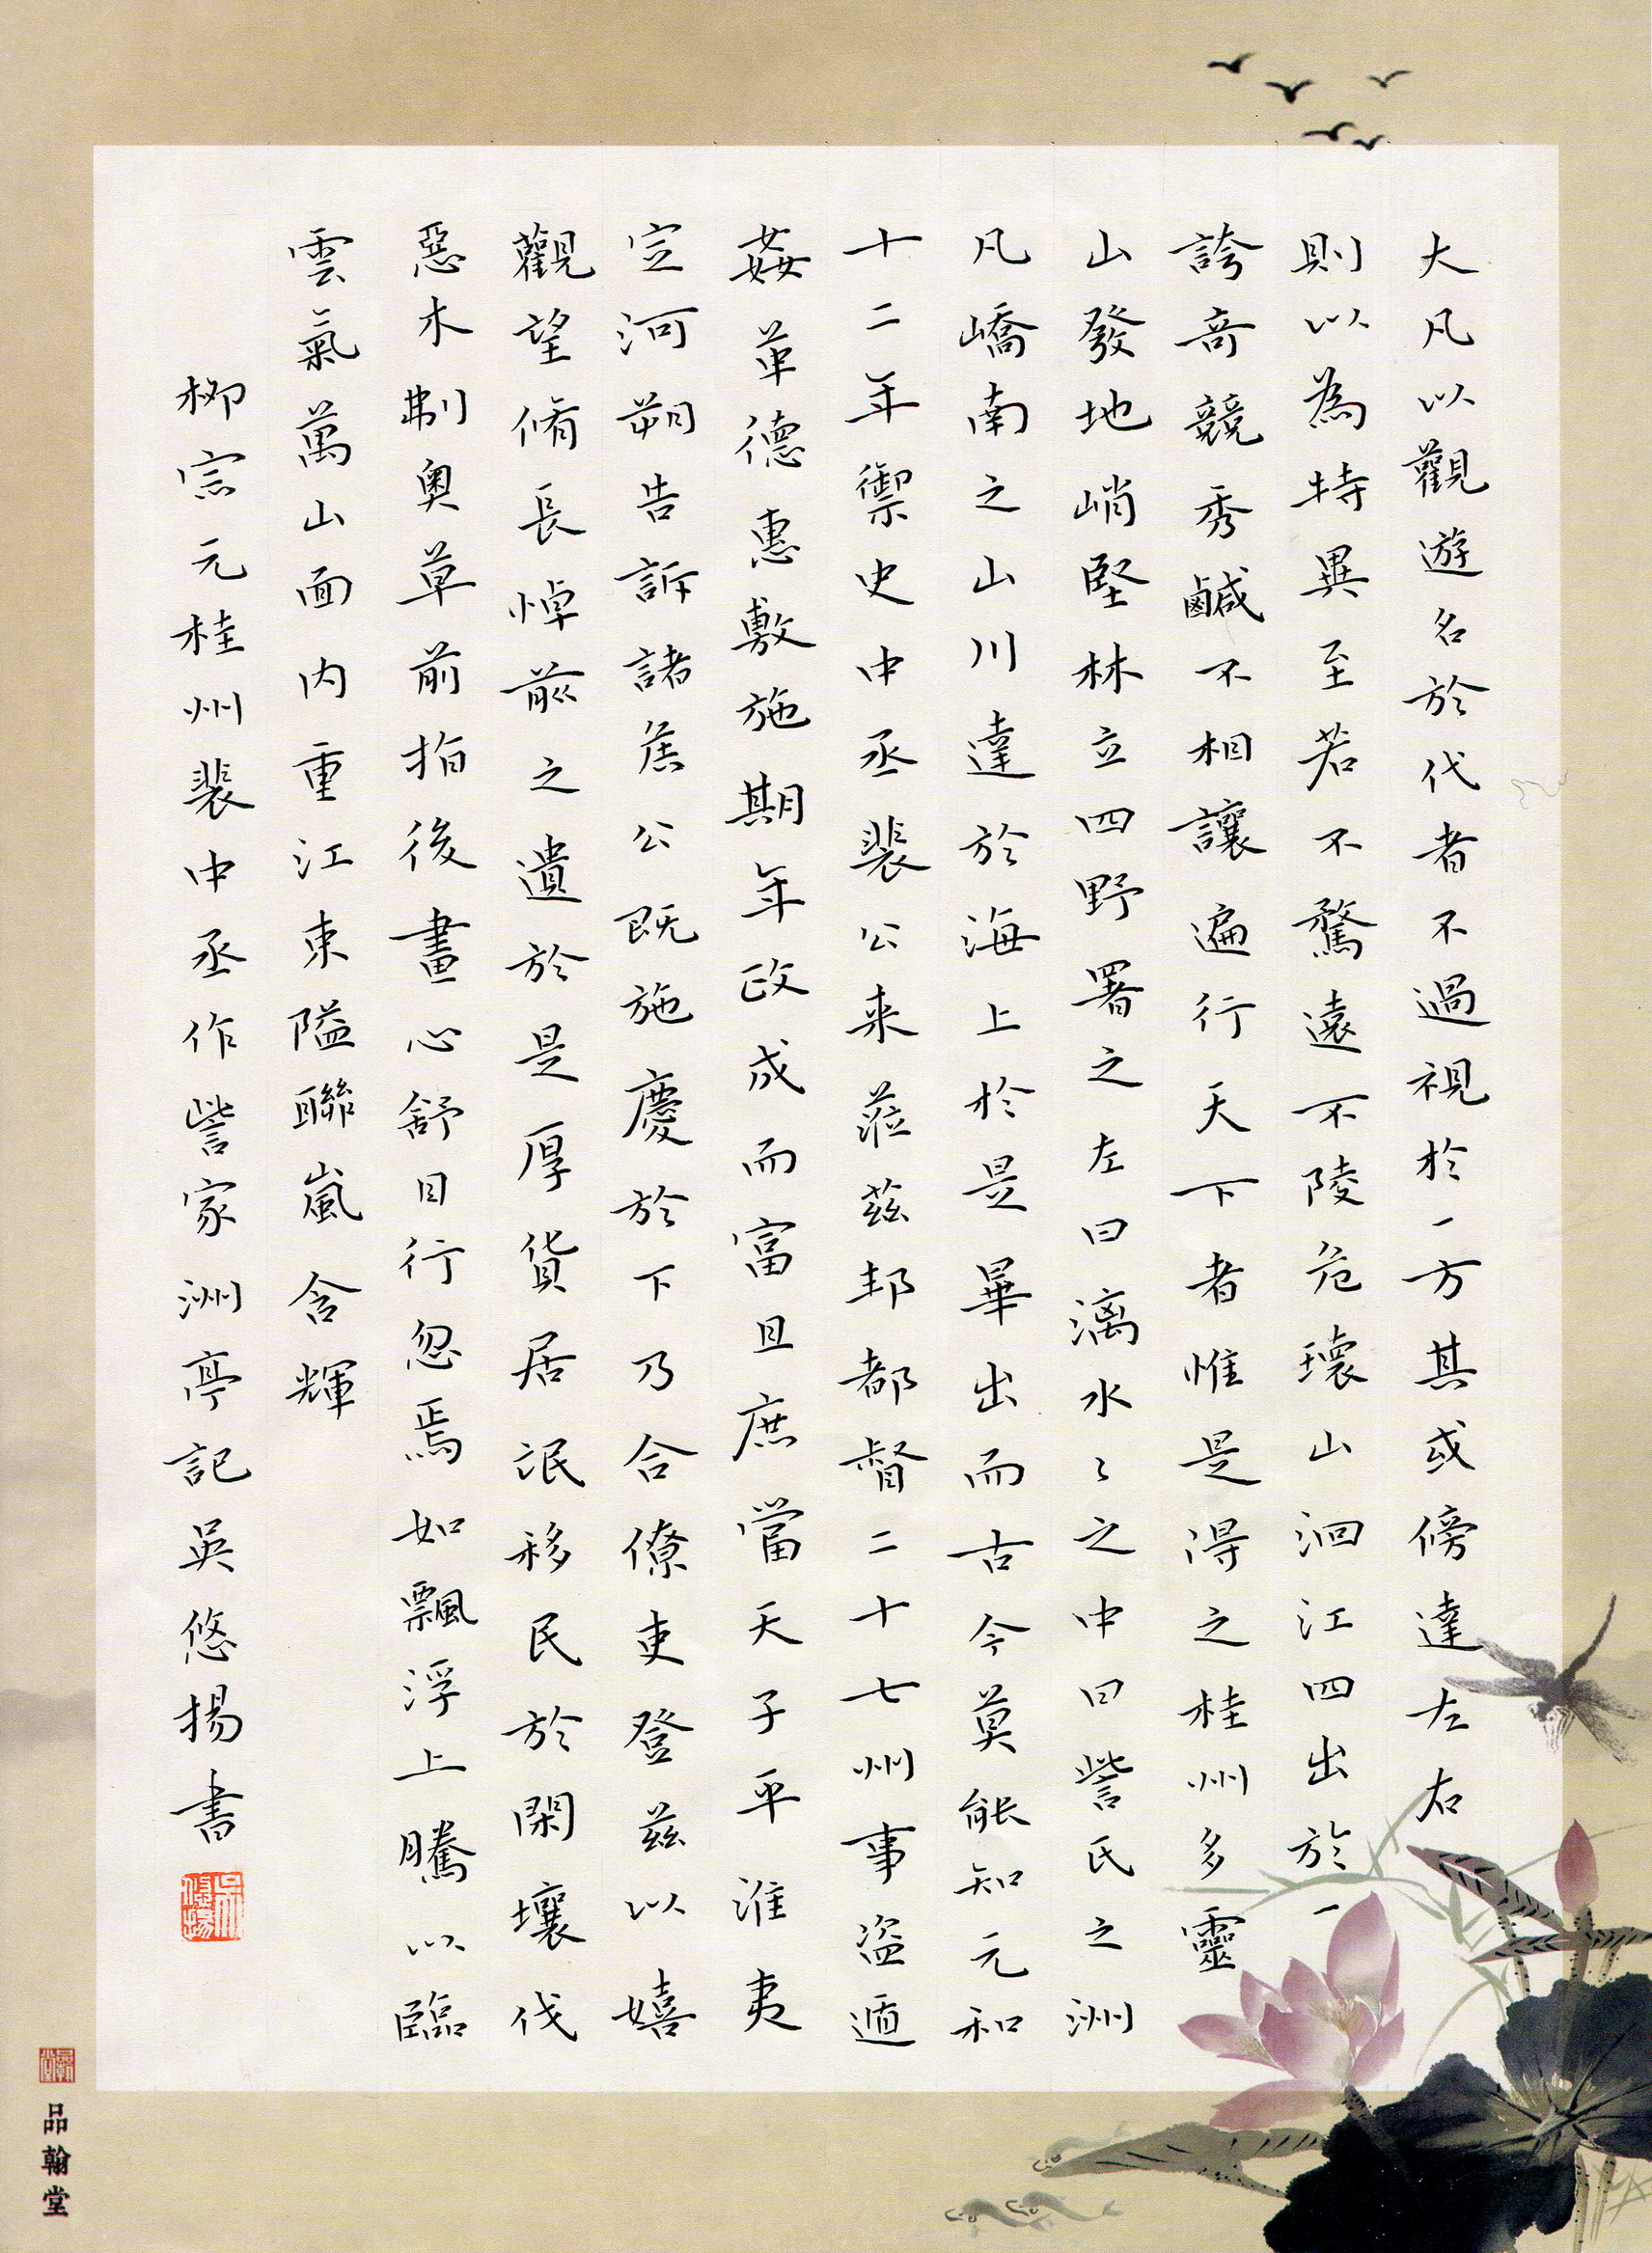 大凡以觀遊名於代者不過視於一方其或傍達左右
則以為特異至若不騖遠不陵危環山洄江四出於一
誇奇競秀鹹不相讓遍行天下者惟是得之桂州多靈
山發地峭堅林立四野署之左曰漓水々之中曰訾氏之洲
凡嶠南之山川達於海上於是畢出而古今莫能知元和
十二年禦史中丞裴公来蒞茲邦都督二十七州事盗遁
姦革德惠敷施期年政成而富且庶當天子平淮夷
定河朔告訴諸侯公既施慶於下乃合僚吏登茲以嬉
觀望脩長悼前之遺於是厚貨居氓移民於閑壤伐
惡木刜奧草前指後畫心舒目行忽焉如飄浮上騰以臨
雲氣萬山面内重江束隘聯嵐含輝
柳宗元桂州裴中丞作訾家洲亭記吳悠揚書
吳悠揚
品翰堂